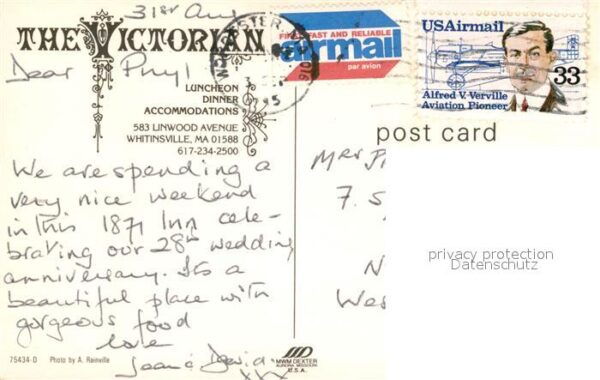 31st Aug
THE VICTORIAN
Dear Phyl
LUNCHEON
DINNER
ACCOMMODATIONS
583 LINWOOD AVENUE
WHITINSVILLE, MA 01588
617-234-2500
We are spending a
very nice weekend
in this 1871 Inn cele-
brating our 28th wedding
anniversary. Its a
beautiful place with
gorgeous food
love
Jean & David
xxx
75434-D Photo by A. Rainville
MWM DEXTER
AURORA, MISSOURI
U.S.A.
FIRST, FAST AND RELIABLE
airmail
par avion
USAirmail
33
Alfred V. Verville
Aviation Pioneer
post card
Mrs P
7. S
N
Wes
privacy protection
Datenschutz